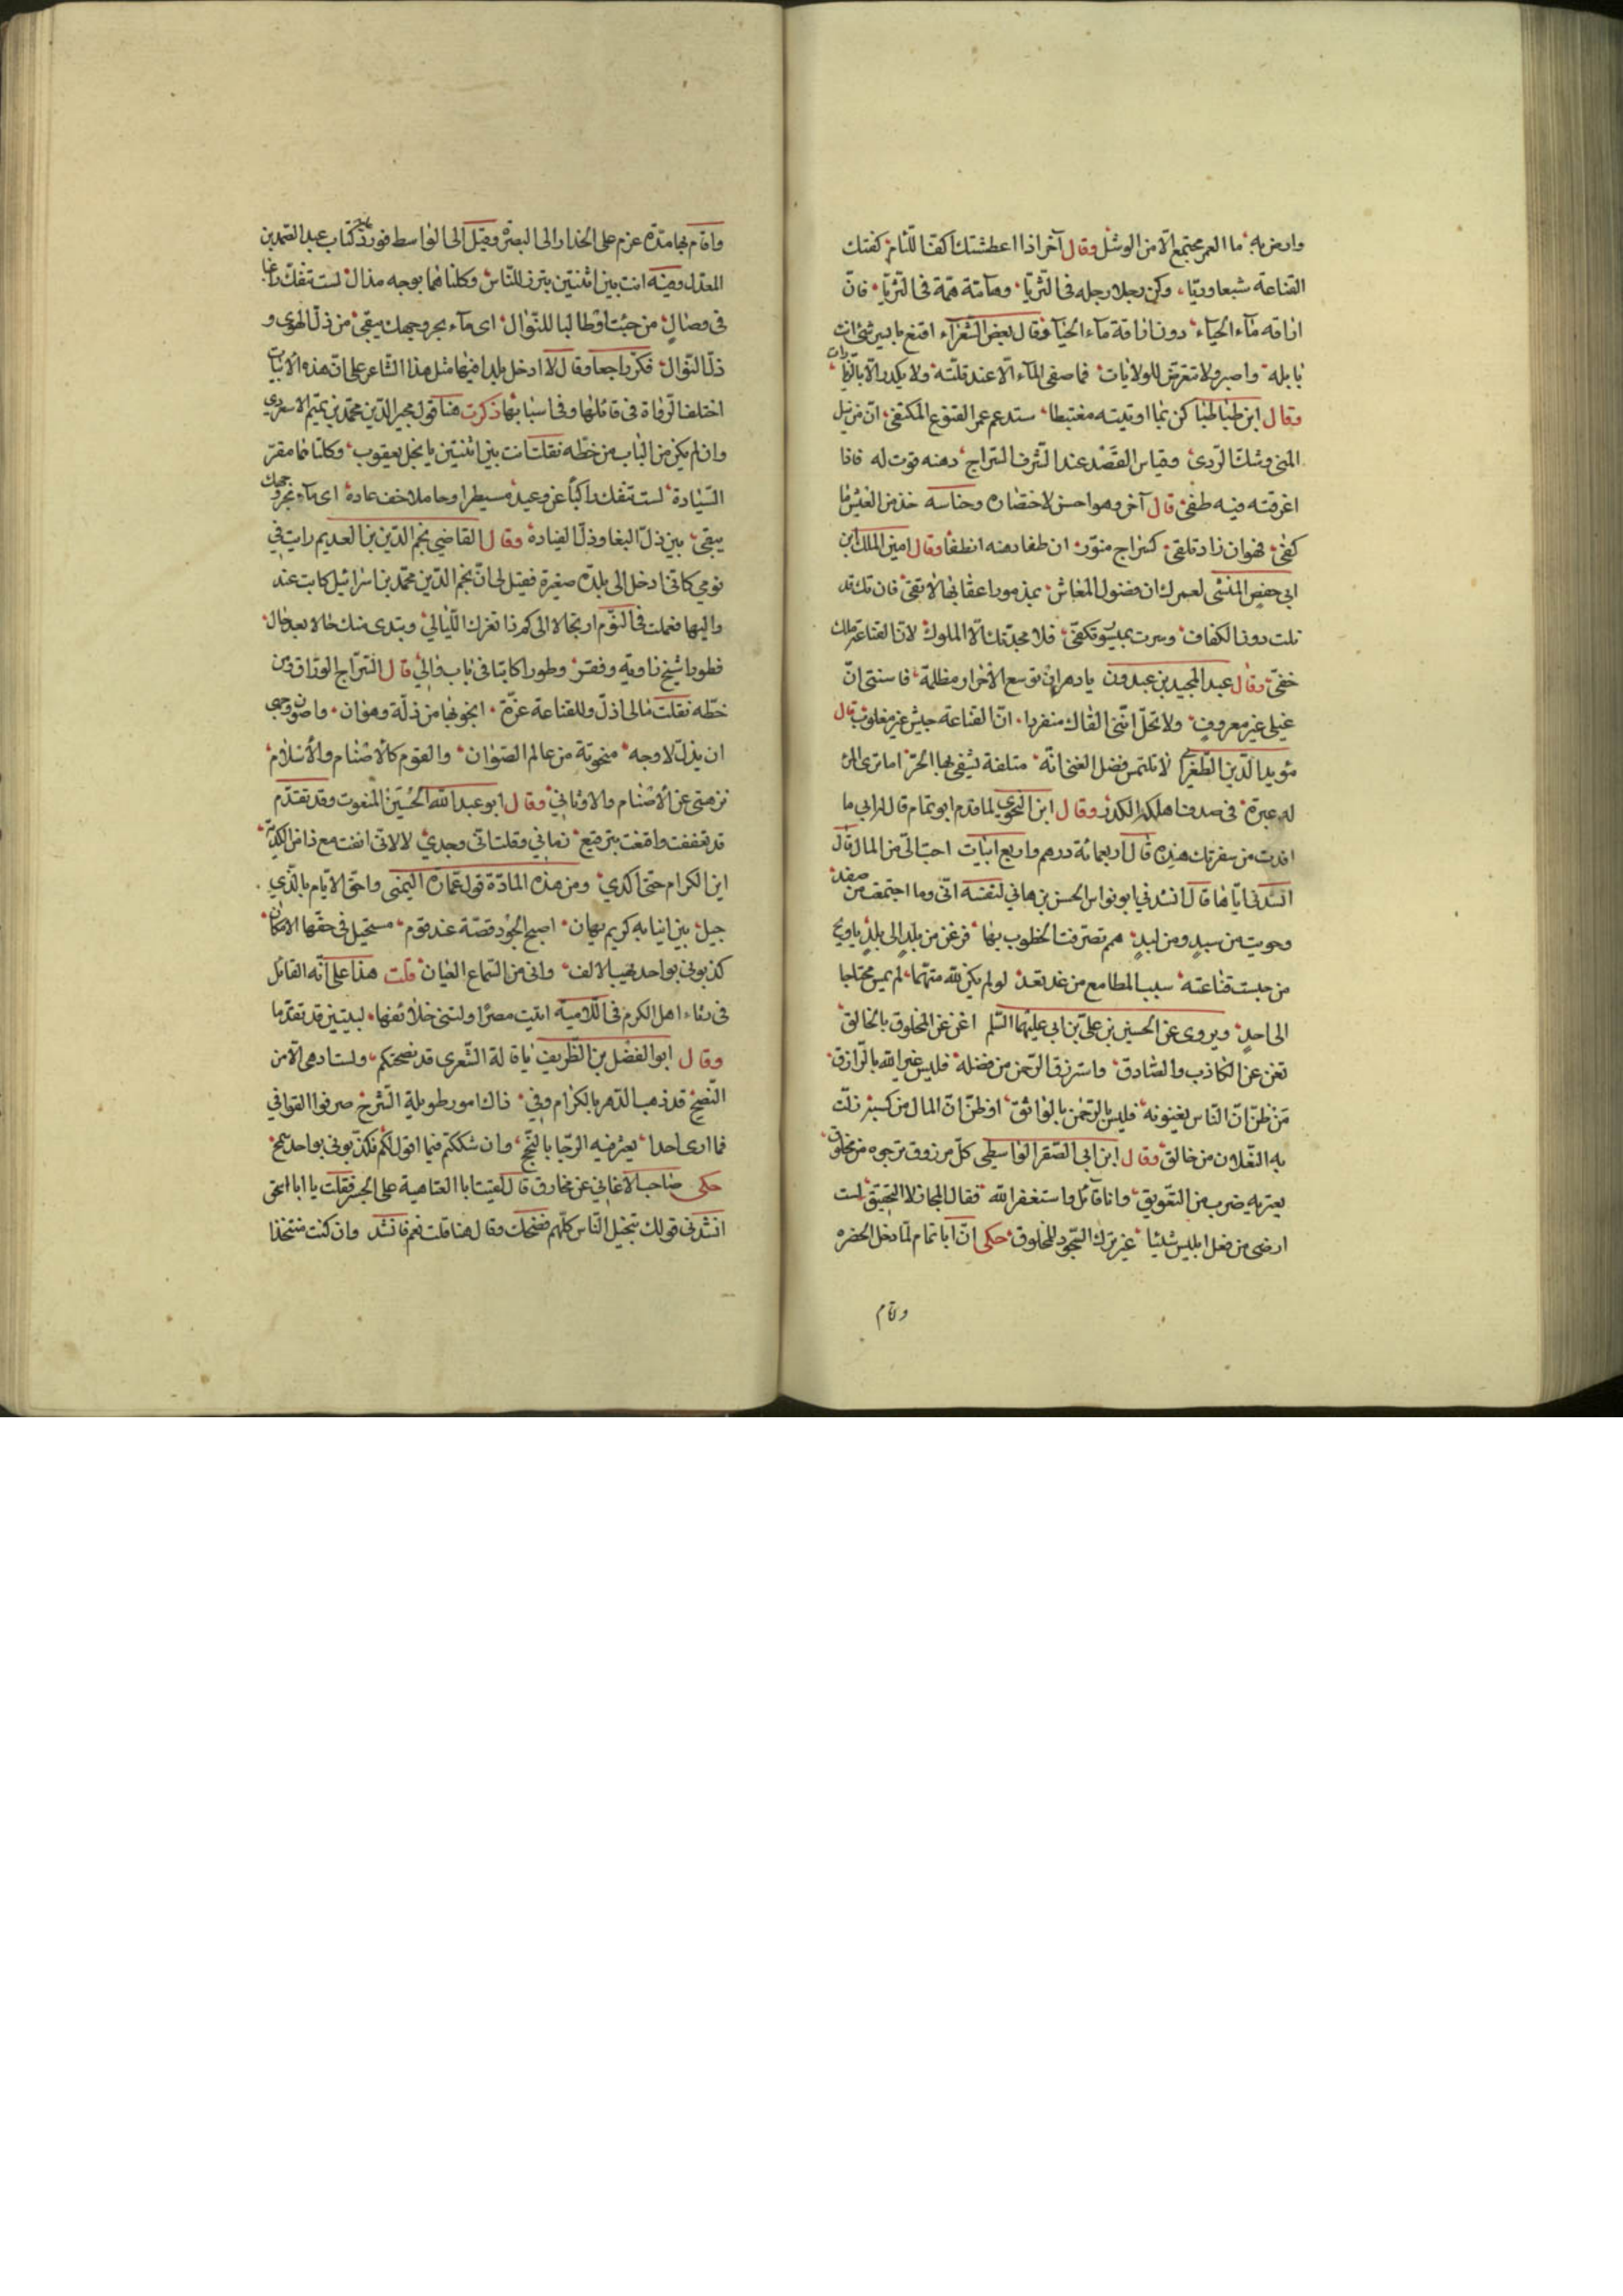 وارض به ما العمر مجتمع الا من الوشل وقال آخر اذا اعطشتك اكف اللئام كفتك
القناعة شبعا وريّا، وكن رجلا رجله فى الثرى وهامة همّة فى الثريّا فانّ
اراقة مآء الحيآء دون اراقة مآء المحيا وقال بعض الشعرآء اقنع بايسر شئ انت
نايله واصبر ولا تتعرض للولايات فما صفى المآء الّا عند قلتّه ولا يكدر الّا بالزيادات
وقال ابن طباطبا كن بما اوتيته مغتبطا ستدم عمر القنوع المكتفى انّ فى نيل
المنى وشك الردى وقياس القصد عند السّرف كسراج دهنه قوت له فاذا
اغرقته فيه طفئ قال آخر وهو احسن لاختصاره وجناسه خذ من العيش ما
كفى فهو ان زاد تلفى كسراج منوّر ان طفا دهنه انطفا وقال امين الملك ابن
ابى حفص المنشى لعمرك ان فضول المعاش يذمّ وراعقابها لا تقى فان تك قد
نلت دون الكفاف وسرت تكفى فلا محمد تك الّا الملوك لانّ القناعة ملك
خفىّ وقال عبد المجيد بن عبدون يا دهر ان توسع الاحرار مظلمة فاستثنى انّ
غيلى غير معروف ولا تخل انّنى القاك منفردا انّ القناعة جيش غير مغلوب قال
مؤيد الدين الطغرا لا تلتمس فضل الغنى انّه متلفة يشقى بها الحرّ اما ترى المرء
له عبرة فى صدف اهلكه الدر وقال ابن النحوى لما قدم ابو تمام قال له ابى ما
افدت من سفرتك هذه قال اربعمائة درهم واربع ابيات احبّ الىّ من المال قال
انشدنى ايّاها قال انشدنى ابو نواس الحسن بن هانى لنفسه انّى وما اجتمعت من صفد
وحويت من سبد ومن لبد همم تصرّفت الخطوب بها فزعن من بلد الى بلد يا ويح
من حبست قناعته سبب المطامع من غد تعد لو لم يكن لله متّهما لم يمس محتاجا
الى احد ويروى عن الحسين بن علىّ بن ابى عليهما السّلم اغن عن المخلوق بالخالق
تغن عن الكاذب والصّادق واسترزق الرّحمن من فضله فليس غير الله بالرّازق
مَن ظنّ انّ النّاس يغنونه فليس بالرّحمن بالواثق او ظنّ انّ المال من كسبه زلّت
به النّعلان من خالق وقال ابن ابى الصّقر الواسطى كلّ مرزوق ترجوه من مخلوق
يعتريه ضرب من التّعويق وانا قآئل واستغفر الله فقال المجاز لا التّحقيق لست
ارضى من فعل ابليس شيئا غير ترك السّجود للمخلوق حكى انّ ابا تمام لمّا دخل الحضره
وقام
واقام بها مدّة عزم على انحدار الى البصرة وقيل الى الواسط فورد كتاب عبد الصمد بن
المعذل وفيه انت بين اثنتين تبرز للنّاس وكلتاهما بوجه مذال لست تنفكّ راغبا
فى وصال من حبيب او طالبا للنّوال اى مآء لحرّ وجهك يبقى من ذلّ الهوى و
ذلّ السّؤال فكرّ راجعا وقال لا ادخل بلدا فيها مثل هذا الشاعر على انّ هذه الابيات
اختلف الرّواة فى قائلها وفى اسبابها ذكرت هنا قول مجير الدّين محمّد بن تميم الاسعردى
وان لم يكن من الباب من خطّه نقلت انت بين اثنتين يا نجل يعقوب وكلتاهما مقرّ
السّيادة لست تنفك راكبا غير وعيد مسيطرا وحاملا خف عادة اى مآء لحرّ وجهك
يبقى بين ذلّ البغا وذلّ القيادة وقال القاضى نجم الدّين بن العديم رايت فى
نومى كانّى ادخل الى بلدّه صغيرة فقيل لى انّ نجم الدّين محمّد بن اسرائيل كاتب عند
واليها فعملت فى النّوم ارتجالا الى كم ذا تغرّك اللّيالى وتبدى منك حالا بعد حال
فطورا شيخ زاوية وفقر وطورا كاتبا فى باب والى قال السّراج الورّاق ومن
خطّه نقلت مالى اذلّ وللقناعة عزّة انجو بها من ذلّة وهوان واصون وجهى
ان يذلّ لاوجه منحوتة من عالم الصّوان والقوم كالاصنام والاسلام
نزهنى عن الاصنام والاوثان وقال ابو عبد الله الحسين المنعوت وقد تقدّم
قد تعففت واقنعت بترقيع زمانى وقلت انّى وجدى لا لانّى انفت مع ذا من الكديّة
اين الكرام حتى اكدى ومن هذه المادّة قول عمارة اليمنى واحقّ الايّام بالذّى
جيل بين ابنايه كريم يهان اصبح الجود قصّة عند قوم مستحيل فى حقّها الامكان
كذبونى بواحد يهب الالف وانى من السّماع العيان قلت هذا على انّه القائل
فى رثاء اهل الكرم فى اللّامية اتيت مصرا واولتنى خلائفها لبيتين قد تقدّما
وقال ابو الفضل بن الظّريف يا قالة الشّعرى قد نصحتكم ولست ادهى الّا من
النّصح قد ذهب الدّهر بالكرام وفى ذاك امور طويلة الشّرح صرفوا القوافى
فما ارى احدا يعثر فيه الرّجا بالنّجح وان شككتم فيما اقول لكم فكذّبونى بواحد سمح
حكى صاحب الاغانى عن مخارق قال لقيت ابا العتاهية على الجسر فقلت يا ابا اسحق
انشدنى قولك تبخيل النّاس كلّهم فضحك وقال هنا قلت نعم فانشد وان كنت متّخذا